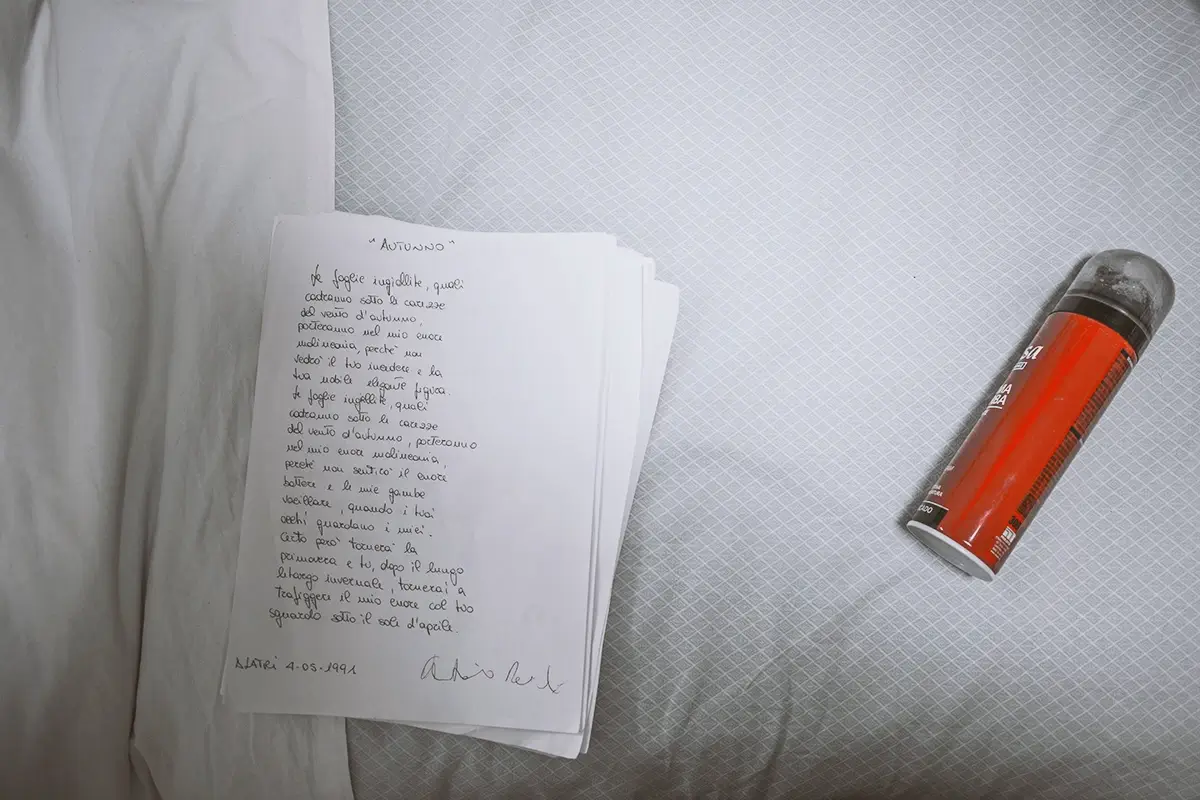 "AUTUNNO"
Le foglie ingiallite, quali
cadranno sotto le carezze
del vento d'autunno,
porteranno nel mio cuore
malinconia, perchè non
vedrò il tuo incedere e la
tua nobile elegante figura.
Le foglie ingiallite, quali
cadranno sotto le carezze
del vento d'autunno, porteranno
nel mio cuore malinconia,
perché non sentirò il cuore
battere e le mie gambe
vacillare, quando i tuoi
occhi guardano i miei.
Certo però tornerà la
primavera e tu, dopo il lungo
letargo invernale, tornerai a
trafiggere il mio cuore col tuo
sguardo sotto il sole d'aprile.
ALATRI 4-05-1991